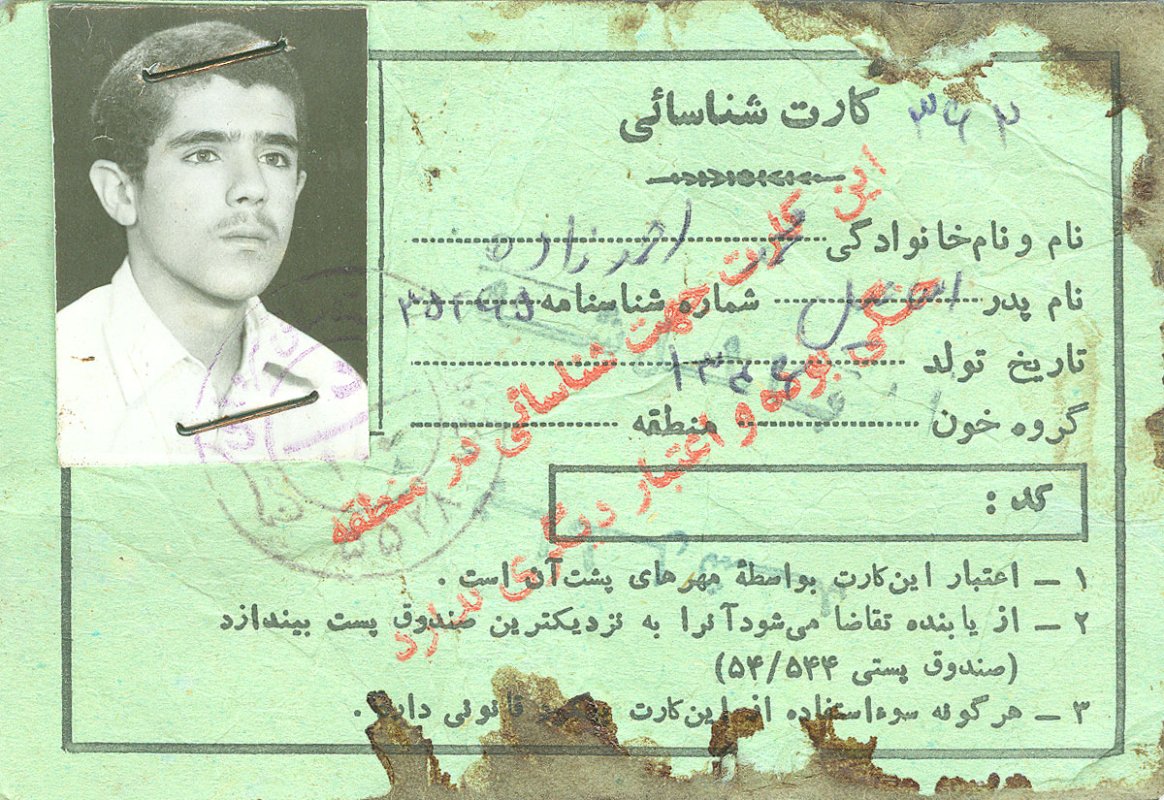 کارت شناسائی ۳۶۲
نام و نام‌خانوادگی محمد احمدزاده
نام پدر اسمعیل شماره شناسنامه
تاریخ تولد ۱۳۴۴
گروه خون منطقه
کد :
۱ – اعتبار این‌کارت بواسطهٔ مهرهای پشت‌آن است .
۲ – از یابنده تقاضا می‌شود آنرا به نزدیکترین صندوق پست بیندازد
(صندوق پستی ۵۴/۵۴۴)
۳ – هرگونه سوءاستفاده از این‌کارت قانونی دارد .
این کارت جهت شناسائی در منطقه
جنگی بوده و اعتبار دیگری ندارد
۵۵۲۸